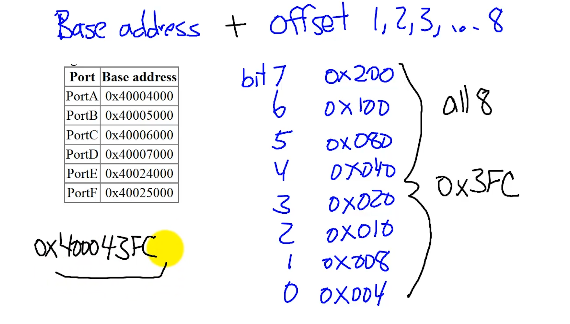 Base address + offset 1, 2, 3, .... 8
Port Base address
PortA 0x40004000
PortB 0x40005000
PortC 0x40006000
PortD 0x40007000
PortE 0x40024000
PortF 0x40025000
0x400043FC
bit 7 0x200
6 0x100
5 0x080
4 0x040
3 0x020
2 0x010
1 0x008
0 0x004
all 8
0x3FC